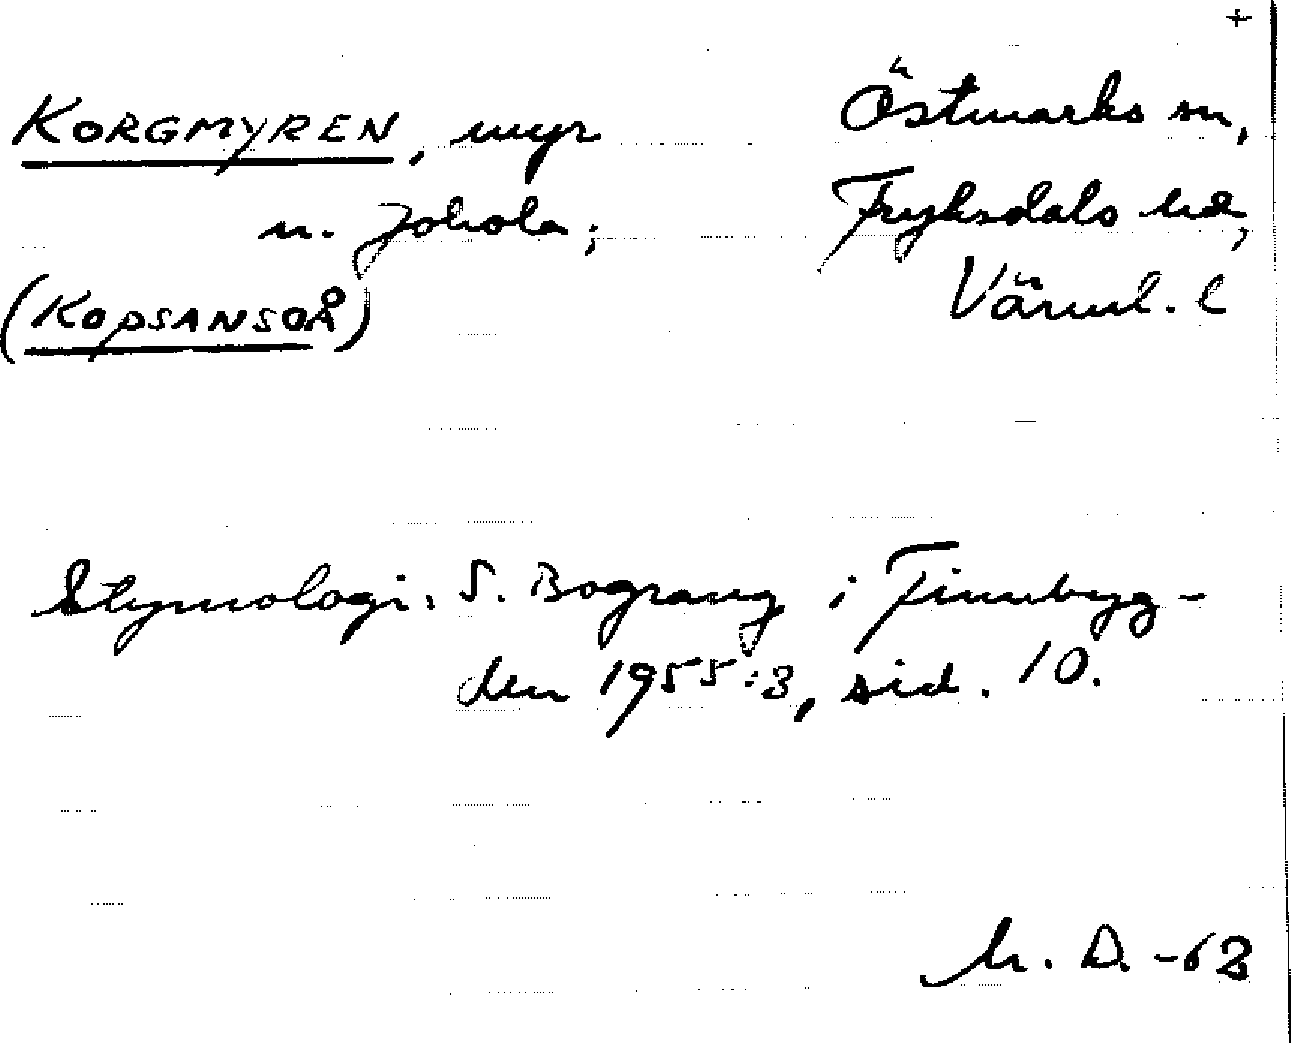 +
KORGMYREN, myr
Östmarks sn,
n. Johola;
Fryksdals hd,
(KOPSANSOÅ)
Värml. l
Etymologi: S. Bograng i Finnbyg-
den 1955:3, sid. 10.
D. -62